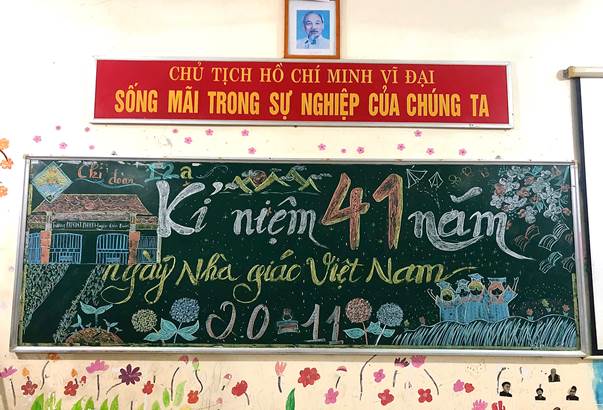 CHỦ TỊCH HỒ CHÍ MINH VĨ ĐẠI
SỐNG MÃI TRONG SỰ NGHIỆP CỦA CHÚNG TA
Chi đoàn 12a
Kỉ niệm 41 năm
ngày Nhà giáo Việt Nam
20-11